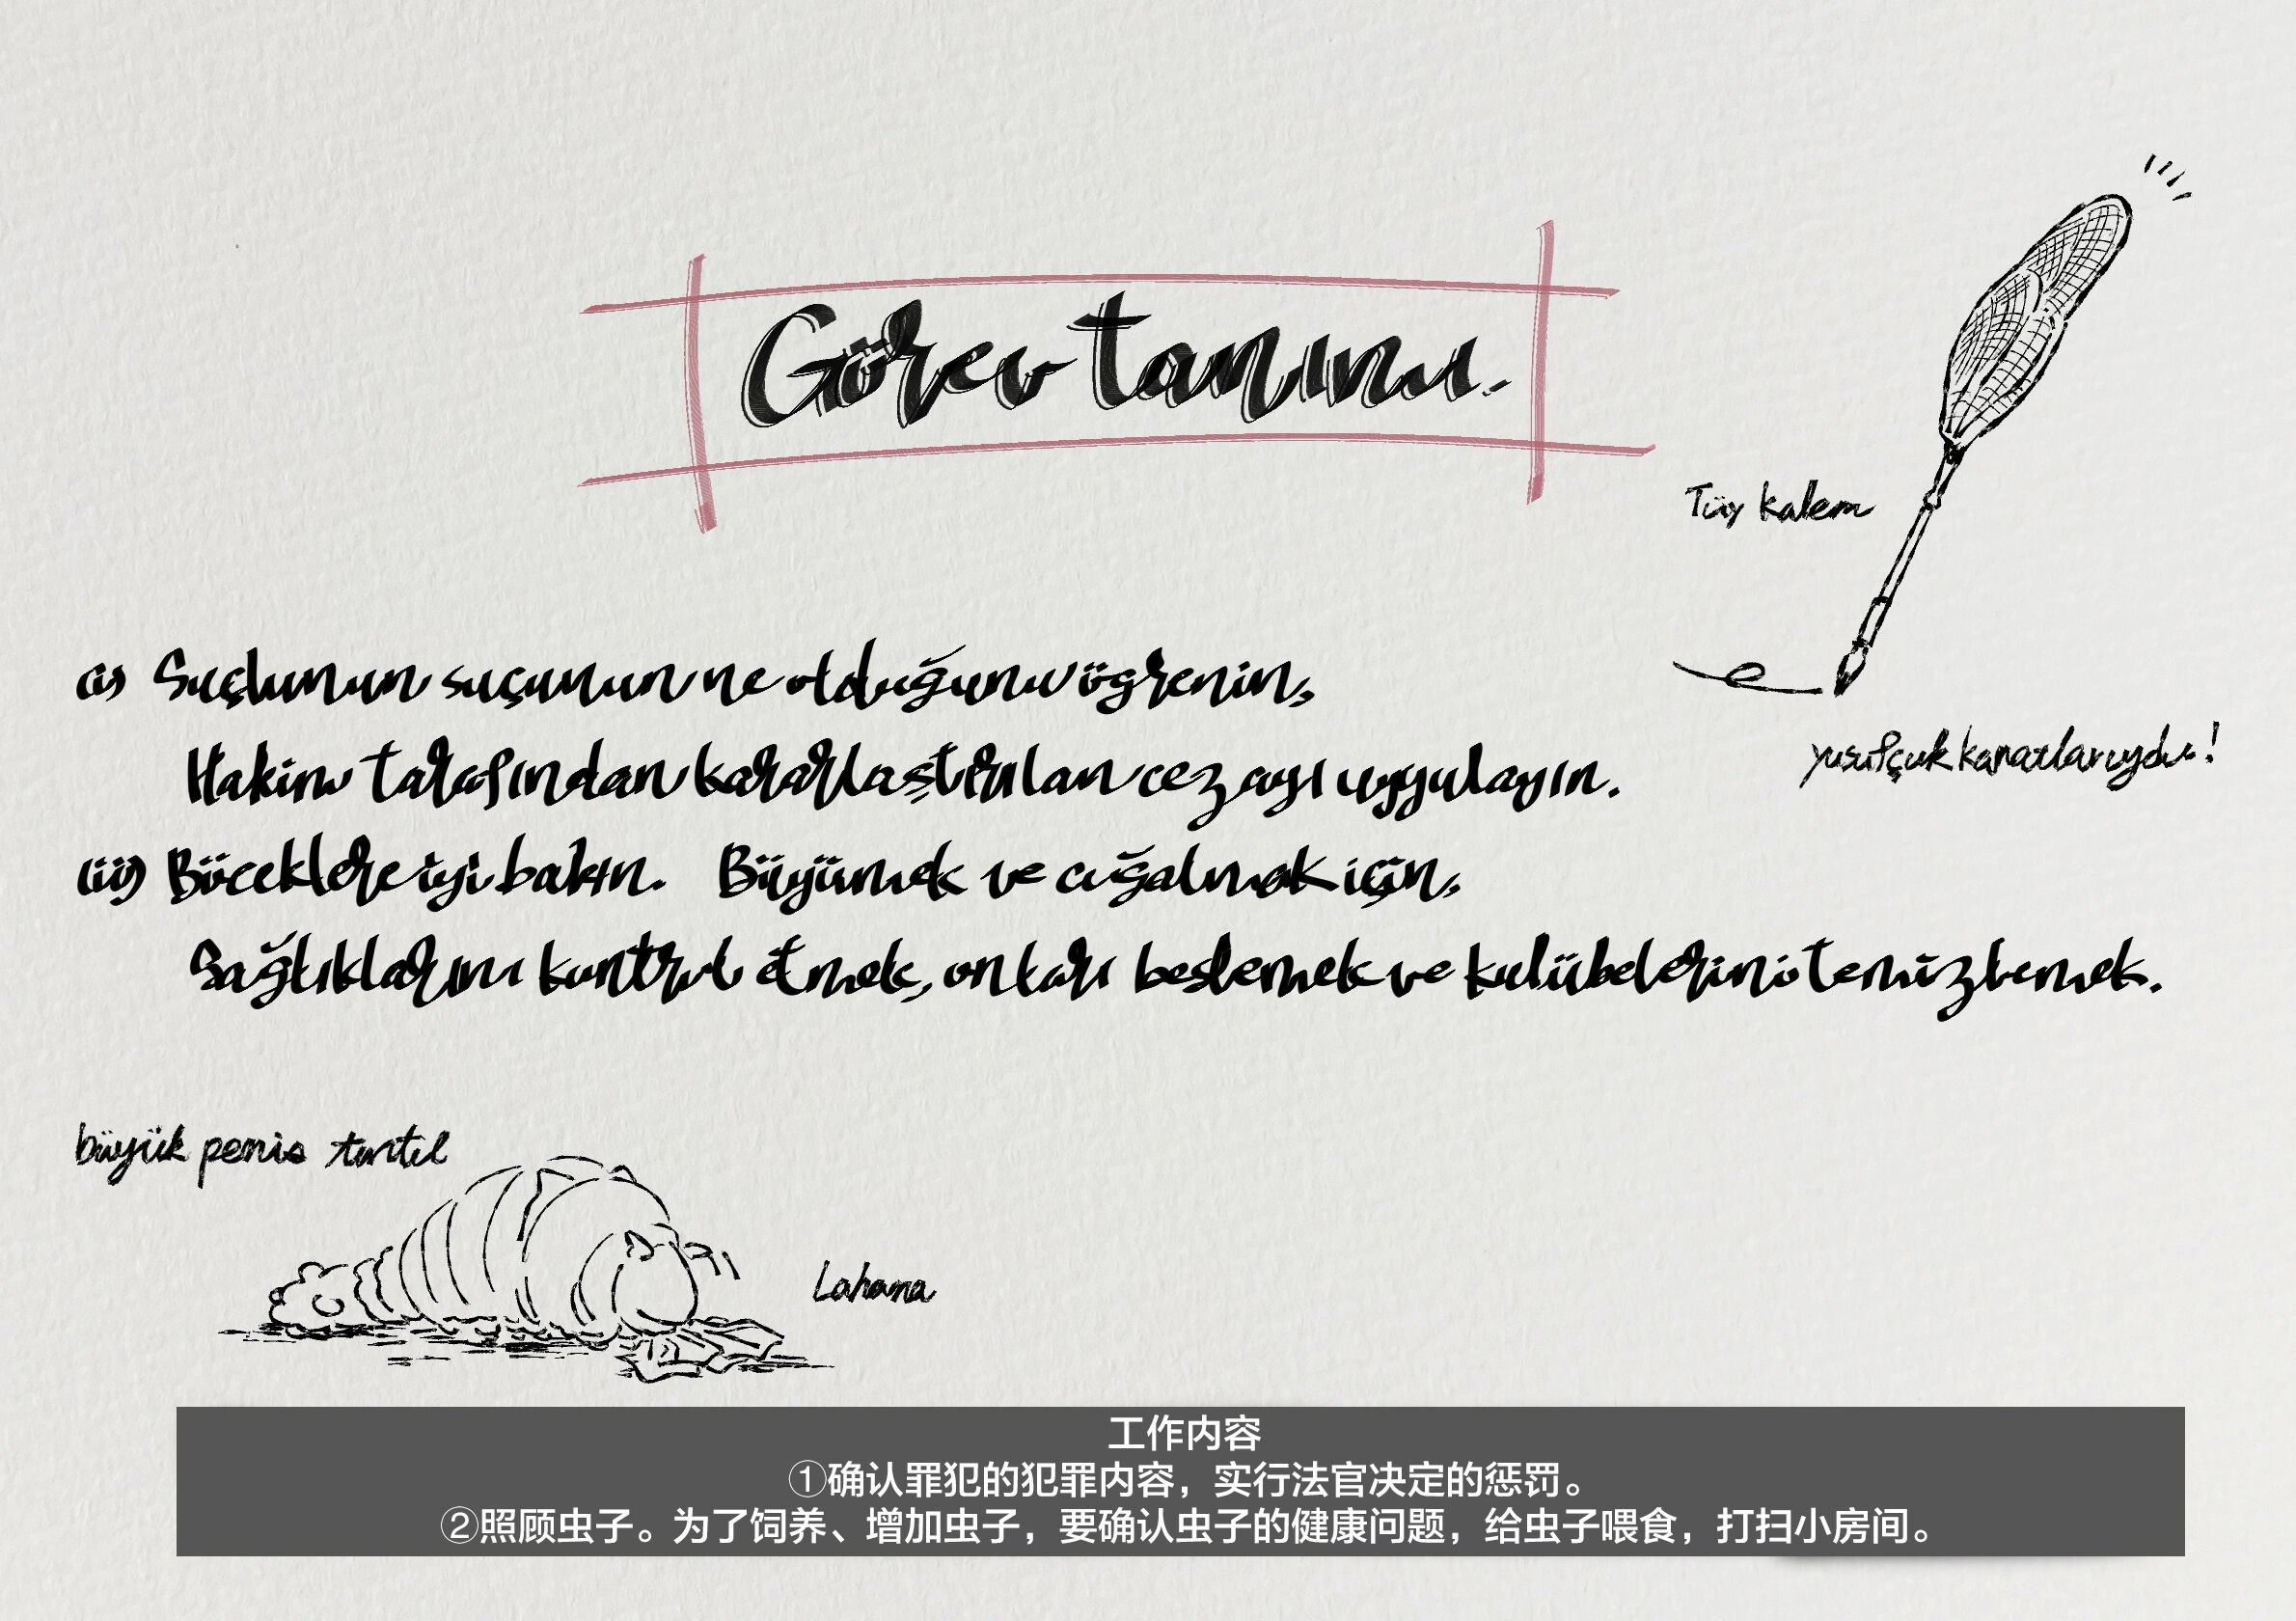 Görev tanımı.
Tüy kalem
(i) Suçlunun suçunun ne olduğunu öğrenin,
yusufçuk kanatlarıydı!
Hakim tarafından kararlaştırılan cezayı uygulayın.
(ii) Böceklere iyi bakın. Büyümek ve çoğalmak için,
Sağlıklarını kontrol etmek, onları beslemek ve kulübelerini temizlemek.
büyük penis tırtıl
Lahana
工作内容
①确认罪犯的犯罪内容，实行法官决定的惩罚。
②照顾虫子。为了饲养、增加虫子，要确认虫子的健康问题，给虫子喂食，打扫小房间。